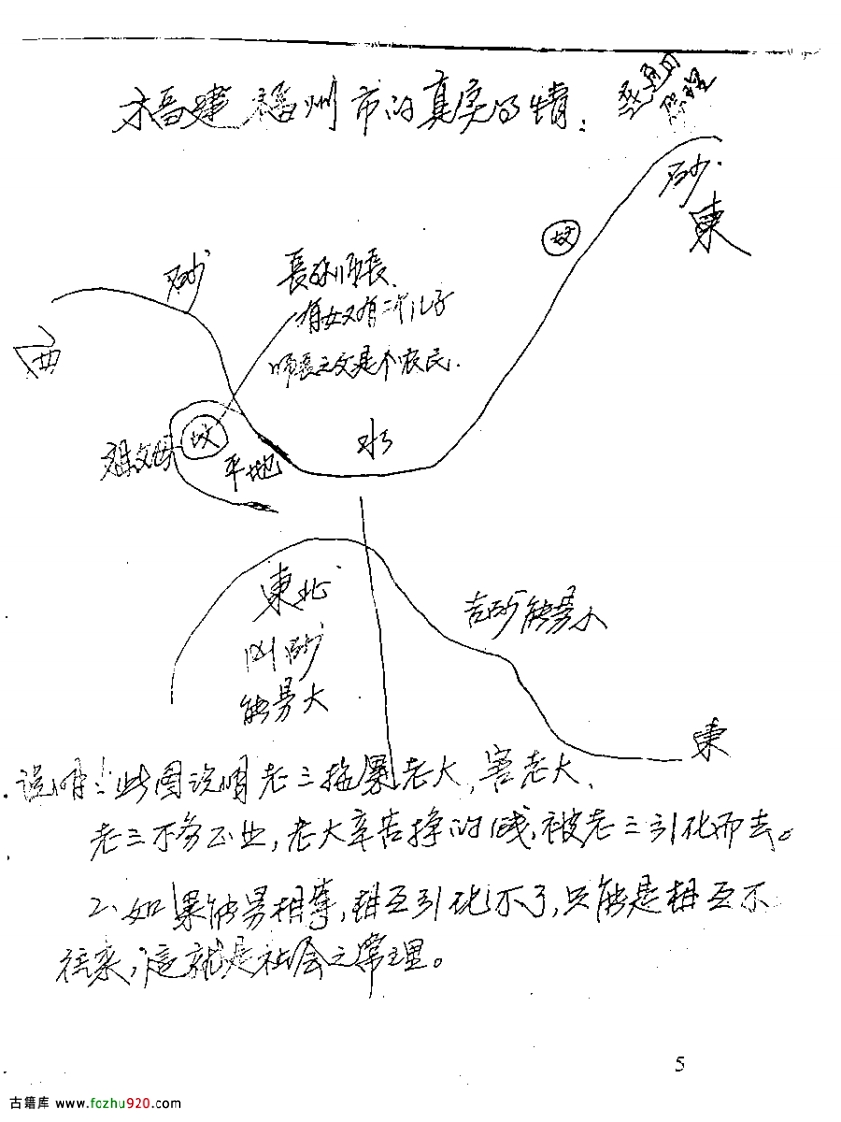 福建福州市的真实的情:
原理
砂
東
坟
砂
西
長孙师長.
有女又有二个儿子
师長之父是个农民.
坟
祖父母
平地
水
東北
凶砂
能量大
吉砂能量小
東
说明:此图说明老三拖累老大,害老大、
老三不务正业,老大辛苦挣的钱,被老三引化而去。
2、如果能量相等,相互引化不了,只能是相互不
往来,這就是社会之常理。
5
古籍库 www.fozhu920.com